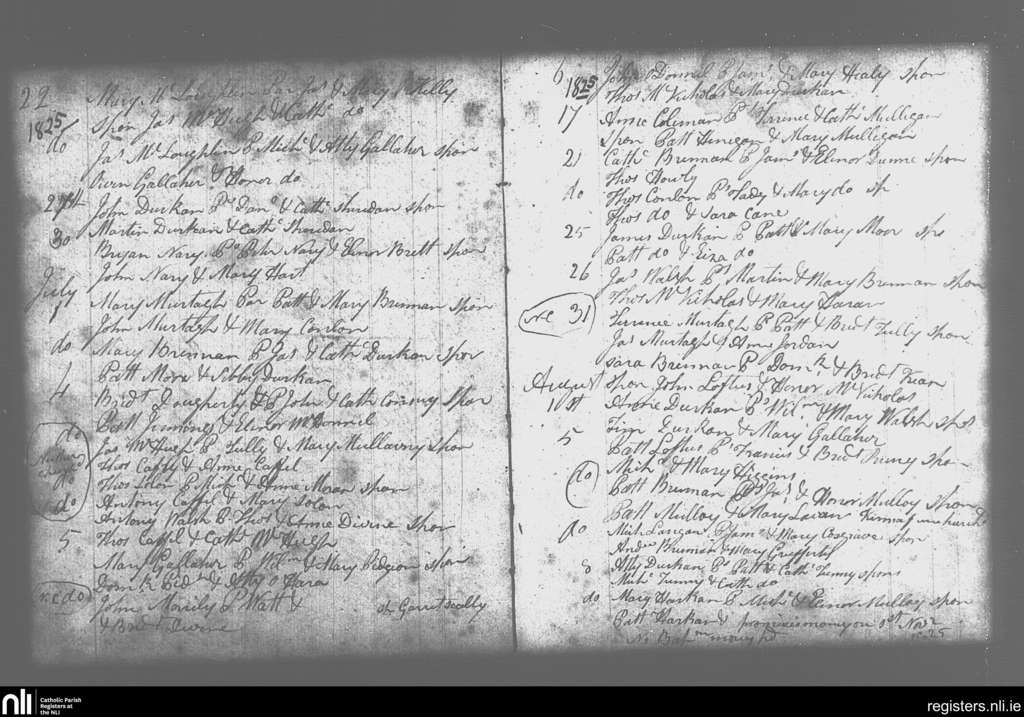 22 Mary McLoughlin Par Jas & Mary Kelly
1825 Spon Jas McHugh & Cath. do
do Jas McLoughlin P Mich. & Ally Gallaher spon
Owen Gallaher & Honor do
27th John Durkan Ps Dan. & Cath. Sheridan spon
Martin Durkan & Cath. Sheridan
30 Bryan Nary Ps Peter Nary & Elinor Brett spon
John Nary & Mary Hart
July
1st Mary Murtagh Par Patt & Mary Brennan spon
John Murtagh & Mary Conlon
do Mary Brennan P Jas & Cath Durkan spon
Patt More & Sibby Durkan
4 Bridt Dougherty P John & Cath Conway spon
Patt Jinnings & Elinor McDonnel
do Jas McHugh P Tully & Mary Mullavny spon
Thos Caffy & Anne Caffel
do Thos Solon P Mich & Anne Moran spon
do Antony Caffel & Mary Solon
Antony Walsh P Thos & Anne Divine spon
5 Thos Caffel & Cath. McHugh
Mary Gallaher P Wilm & Mary Pidgeon spon
Domk & Ally O Hara
n c do John P Watt & sh Garret Scally
& Bridt Divine
6 1825 John O Donnel P Jam. & Mary Healy spon
Thos McNicholas & Mary Durkan
17 Anne Coleman P Terrence & Cath. Mulligan
Spon Patt Finegan & Mary Mulligan
21 Cath. Brennan P Jam. & Elinor Dunne spon
Thos Howly
do Thos Conlon P Tady & Mary do sp
Thos do & Sara Cane
25 James Durkan P Patt & Mary Moor spo
Patt do & Eiza do
26 Jas Walsh Ps Martin & Mary Brennan spon
Thos McNicholas & Mary Haran
N C 31 Terrence Murtagh P Patt & Bridt Tully spon
Jas Murtagh & Anne Jordan
Sara Brennan P Domk & Bridt Kean
August Spon John Loftus & Honor McNicholas
1st Anne Durkan P Wilm & Mary Walsh spon
Durkan & Mary Gallaher
5 Patt Loftus Ps Francis & Bridt spon
Mich. & Mary Higgins
do Patt Brennan Ps Jas & Honor Mulloy spon
Patt Mulloy & Mary Lavan
do Mich Langan P Jam & Mary Cosgrave spon
Andw Brennan & Mary Griffith
8 Ally Durkan Ps Patt & Cath. Tunny spons
Mich. Tunny & Cath do
do Mary Harkan P Mich. & Elinor Mulloy spon
Patt Harkan & promises money on 1st Novr
No Bapm money pd 1825
nli
Catholic Parish
Registers at
the NLI
registers.nli.ie